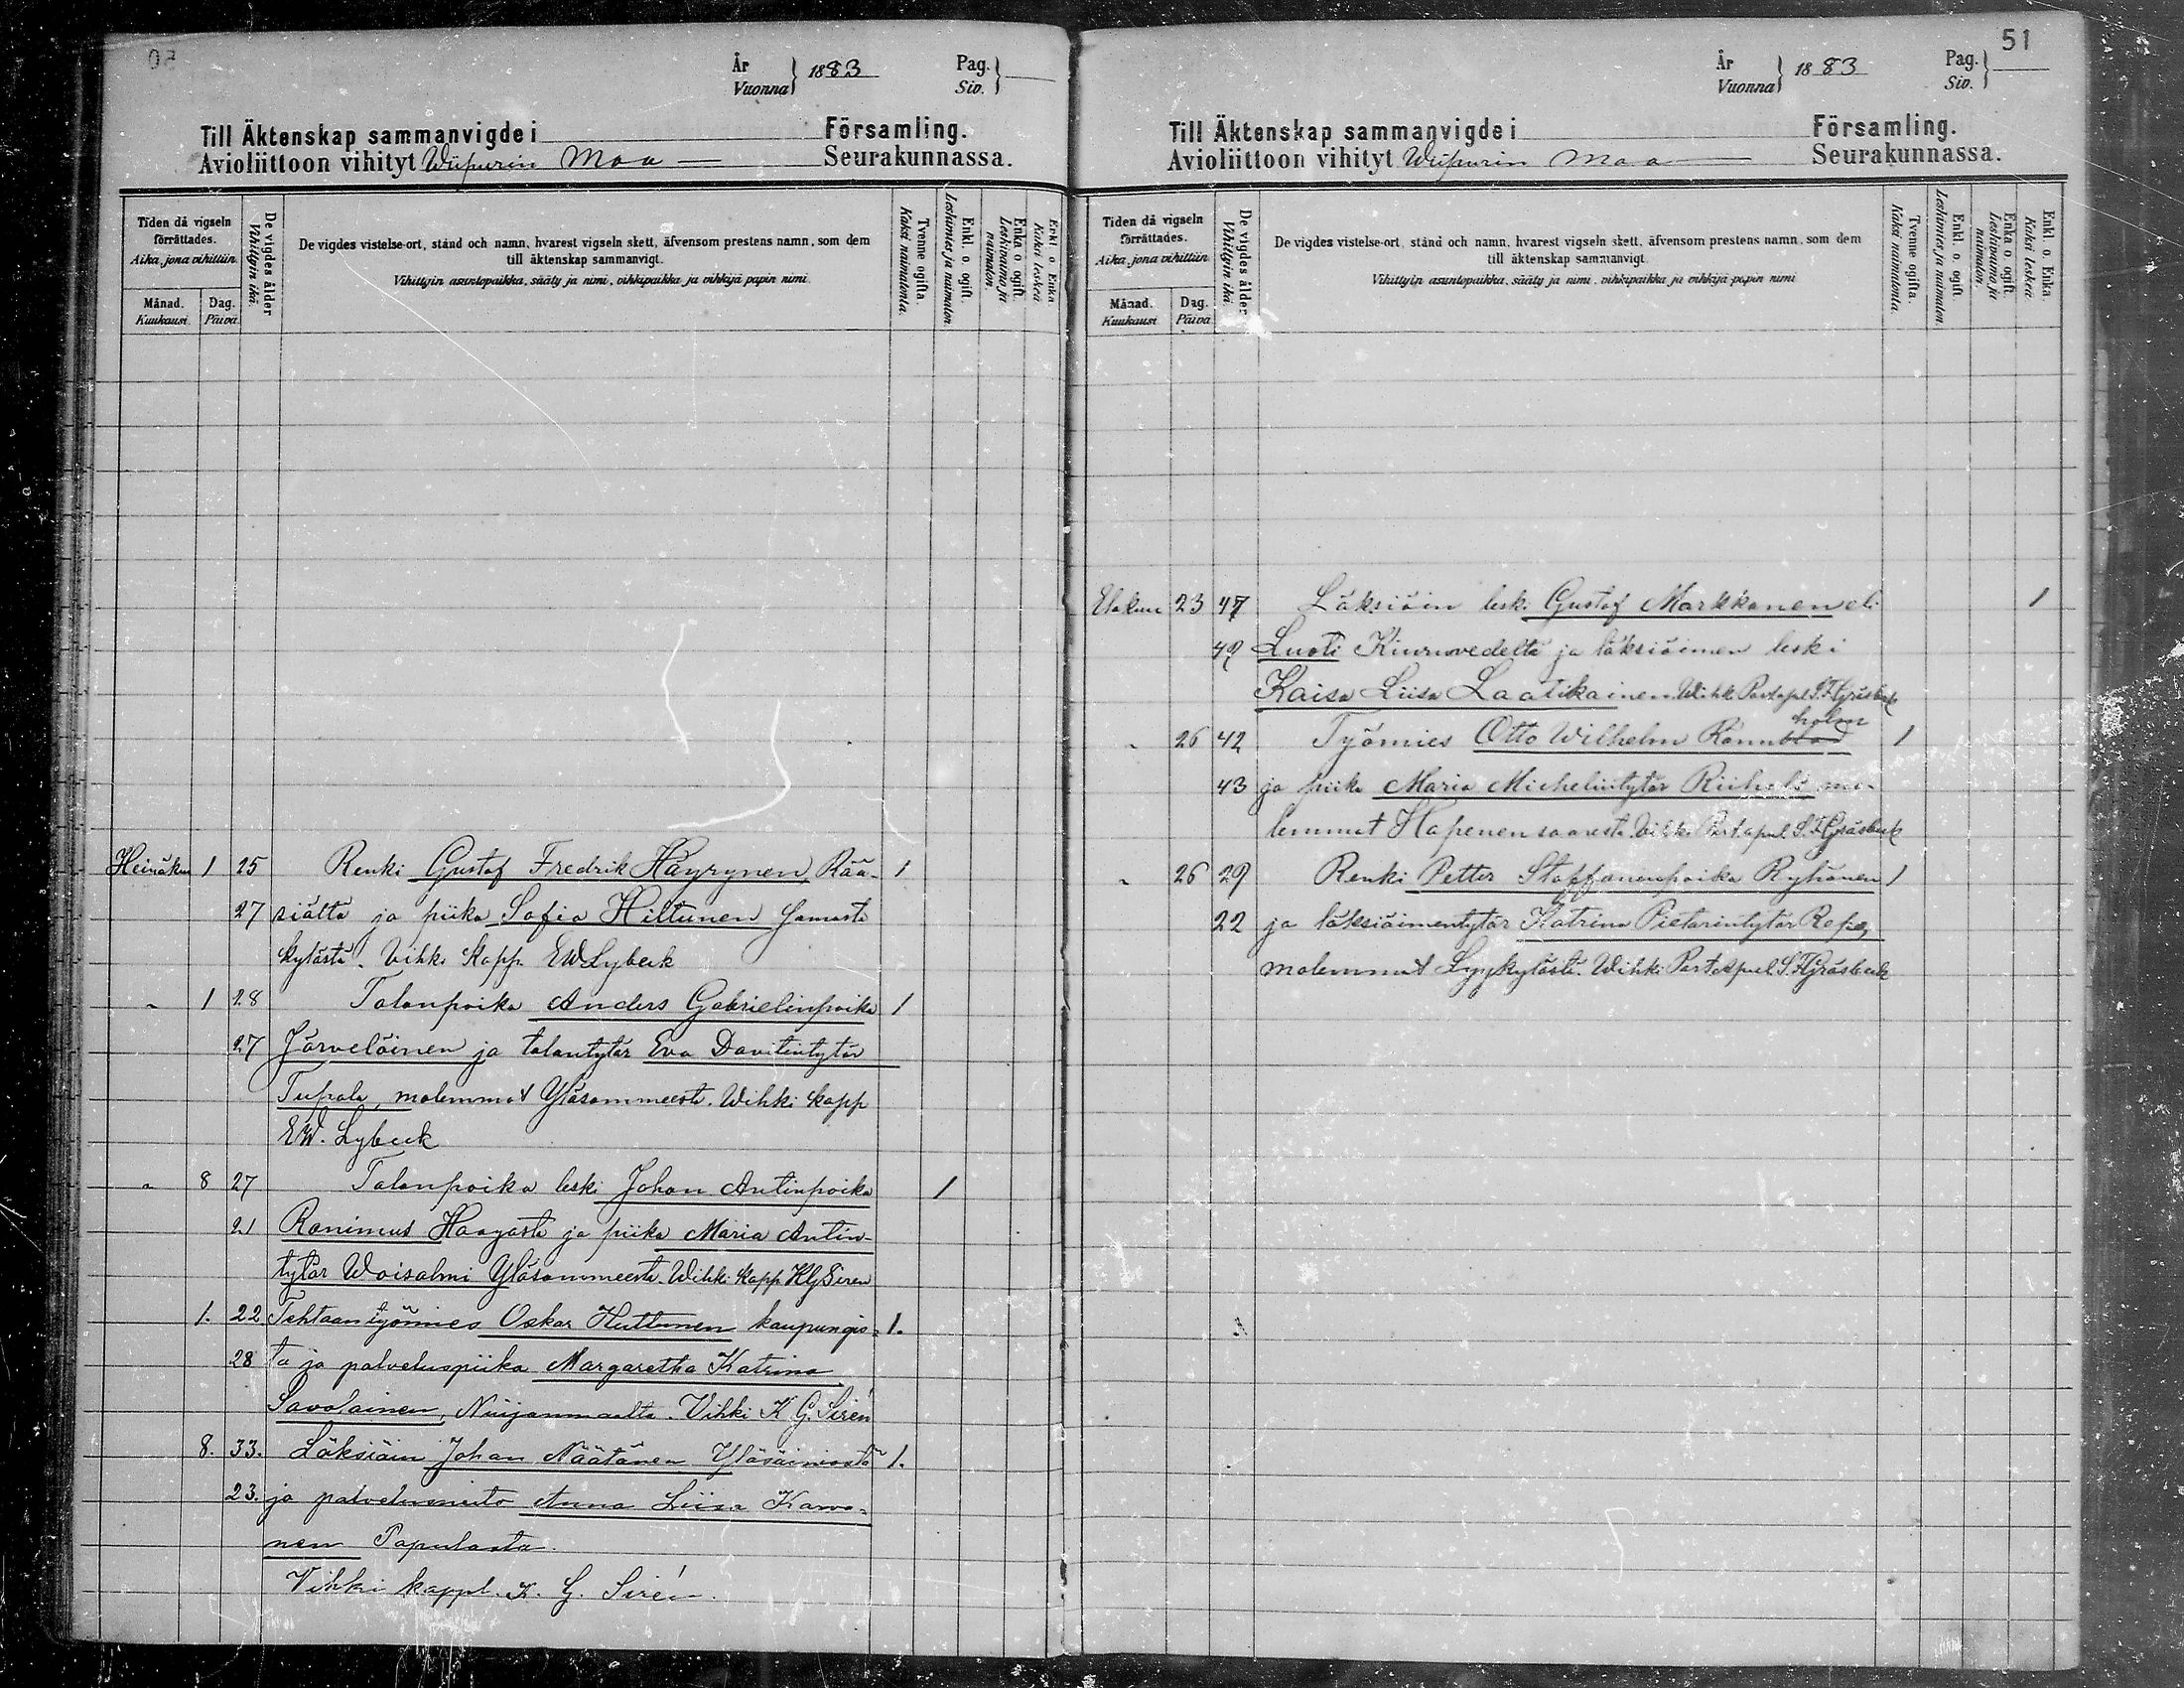 År
Vuonna } 1883
Pag.
Siv. }
Till Äktenskap sammanvigde i Församling.
Avioliittoon vihityt Wiipurin Maa — Seurakunnassa.
Tiden då vigseln förrättades.
Aika, jona vihittiin.
Månad.
Kuukausi.
Dag.
Päivä.
De vigdes ålder
Vihittyin ikä.
De vigdes vistelse-ort, stånd och namn, hvarest vigseln skett, äfvensom prestens namn, som dem
till äktenskap sammanvigt.
Vihittyin asuntopaikka, sääty ja nimi, vihkipaikka ja vihkijä papin nimi
Tvenne ogifta.
Kaksi naimatonta.
Enkl. o. ogift.
Leskimies ja naimaton.
Enka o. ogift.
Leskivaimo ja naimaton.
Enkl. o. Enka
Kaksi leskeä
Heinäkuu 1 25 Renki Gustaf Fredrik Häyrynen Rää- 1
27 siältä ja piika Sofia Hiltunen samasta
kylästä. Vihki Kapp. EWLybeck
" 1 28 Talonpoika Anders Gabrielinpoika 1
27 Järveläinen ja talontytär Eva Davitintytär
Tupala, molemmat Yläsommeesta. Wihki kapp
EW. Lybeck
" 8 27 Talonpoika leski Johan Antinpoika 1
21 Ronimus Haagasta ja piika Maria Antin-
tytär Woisalmi Yläsommeesta. Wihki kapp KGSiren
1. 22 Tehtaan työmies Oskar Huttunen kaupungis= 1.
28 ta ja palveluspiika Margaretha Katrina
Savolainen, Nuijanmaalta. Vihki K G. Sirén
8. 33. Läksiäin Johan Näätänen Yläsäiniöstä 1.
23. ja palvelusneito Anna Liisa Karvo=
nen Papulasta.
Vihki kappl. K. G. Sirén.
51
År
Vuonna } 1883
Pag.
Siv. }
Till Äktenskap sammanvigde i Församling.
Avioliittoon vihityt Wiipurin Maa — Seurakunnassa.
Tiden då vigseln förrättades.
Aika, jona vihittiin
Månad.
Kuukausi
Dag.
Päivä
De vigdes ålder
Vihittyin ikä.
De vigdes vistelse-ort, stånd och namn, hvarest vigseln skett, äfvensom prestens namn, som dem
till äktenskap sammanvigt.
Vihittyin asuntopaikka, sääty ja nimi, vihkipaikka ja vihkijä papin nimi
Tvenne ogifta.
Kaksi naimatonta.
Enkl. o. ogift.
Leskimies ja naimaton.
Enka o. ogift.
Leskivaimo ja naimaton.
Enkl. o. Enka
Kaksi leskeä
Elokuu 23 47 Läksiäin leski Gustaf Markkanen eli 1
49 Luoti Kiuruvedeltä ja läksiäimen leski
Kaisa Liisa Laatikainen. Wihk. Past.apul S.F.Gråsbeck
holm
" 26 42 Työmies Otto Wilhelm Rönnblad 1
43 ja piika Maria Michelintytär Riihelä mo-
lemmat Hapenensaaresta. Vihki Past.apul S.F.Gråsbeck
" 26 29 Renki Petter Staffaninpoika Ryhänen 1
22 ja läksiäimentytär Katrina Pietarintytär Repo,
molemmat Lyykylästä. Wihki Past.Apul. S.F.Gråsbeck